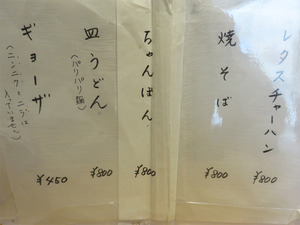 レタスチャーハン ¥800
焼そば ¥800
ちゃんぽん ¥800
皿うどん ¥800
(パリパリ麺)
ギョーザ ¥450
(ニンニクとニラは
入っていません)